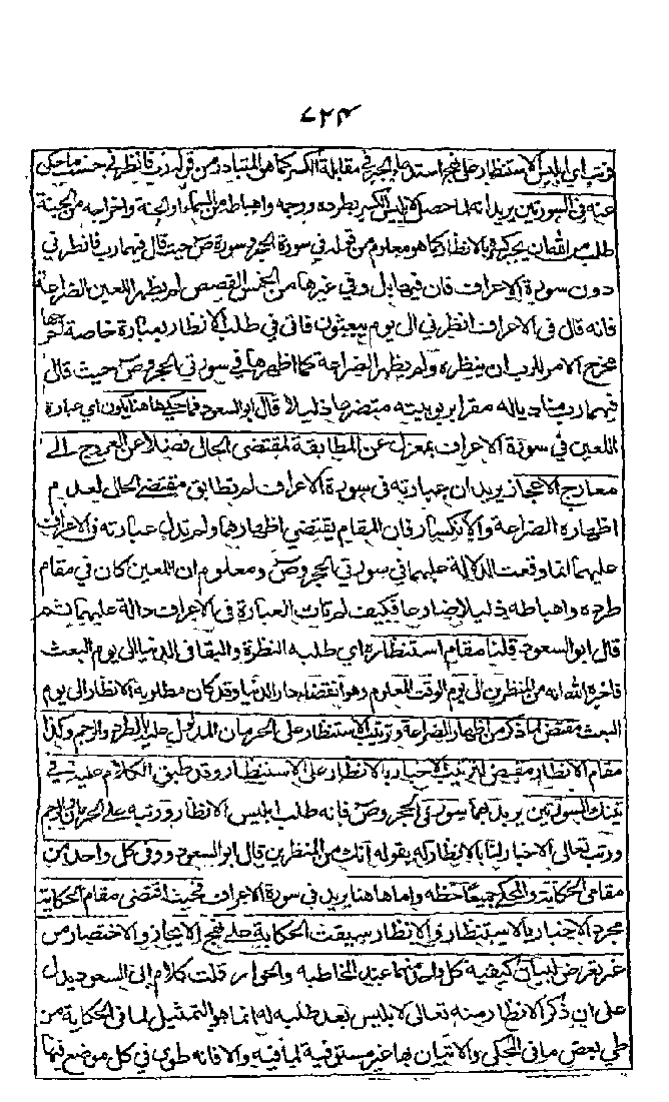 ٧٢٤
ورتب اي ابليس الاستنظار على نهج استدعاء الجبر في مقابلة الكسر كما هو المتبادر من قوله رب فانظرني حسبما حكى
عنه في السورتين يريد انه لما حصل لابليس الكسر بطرده ورجمه واهباطه من السماء او الجنة واخراجه من الجنة
طلب من الله ان يجبر كسره بالانظار كما هو معلوم من قوله في سورة الحجر وسورة ص حيث قال فيهما رب فانظرني
دون سورة الاعراف فان فيها بل وفي غيرها من القصص لم يظهر اللعين الضراعة
فانه قال في الاعراف انظرني الى يوم يبعثون فاتى في طلب الانظار بعبارة خاصة
مخرج الامر للرب ان ينظره ولم يظهر الضراعة كما اظهرها في سورتي الحجر وص حيث قال
فيهما رب مناديا له مقرا بربوبيته متضرعا ذليلا قال ابو السعود فما حكيها هنا يكون اي عبارة
اللعين في سورة الاعراف بمعزل عن المطابقة لمقتضى الحال فضلا عن العروج الى
معارج الاعجاز يريد ان عبارته في سورة الاعراف لم تطابق مقتضى الحال لعدم
اظهاره الضراعة والانكسار فان المقام يقتضي اظهارهما ولم تدل عبارته في الاعراف
عليهما كما وقعت الدلالة عليهما في سورتي الحجر وص ومعلوم ان اللعين كان في مقام
طرده واهباطه ذليلا ضارعا فكيف لم تات العبارة في الاعراف دالة عليهما ثم
قال ابو السعود قلنا مقام استنظاره اي طلبه النظرة والبقا في الدنيا الى يوم البعث
فاخبره الله انه من المنظرين الى يوم الوقت المعلوم وهو انقضاء دار الدنيا وقد كان مطلوبه الانظار الى يوم
البعث مقتض لما ذكر من اظهار الضراعة وترتيب الاستنظار على الحرمان المدلول عليه بالطرد والرجم وكذا
مقام الانظار مقتض لترتيب الاخبار بالانظار على الاستنظار وقد طبق الكلام عليه في
تينك السورتين يريد بهما سورتي الحجر وص فانه طلب ابليس الانظار ورتبه على الحرمان والرجم
ورتب تعالى الاخبار لنا بالانظار له بقوله انك من المنظرين قال ابو السعود ووفى كل واحد من
مقامي الحكاية والمحكي جميعا حظه واما هاهنا يريد في سورة الاعراف فحيث اقتضى مقام الحكاية
مجرد الاخبار بالاستنظار والانظار سيقت الحكاية على نهج الايجاز والاختصار من
غير تعرض لبيان كيفية كل واحد منهما عند المخاطبة والحوار قلت كلام ابي السعود يدل
على ان ذكر الانظار منه تعالى لابليس بعد طلبه له انما هو التمثيل لما في الحكاية من
طي بعض ما في المحكي والاتيان بها غير مستوفية لما فيه والا فانه طوى في كل موضع فيها